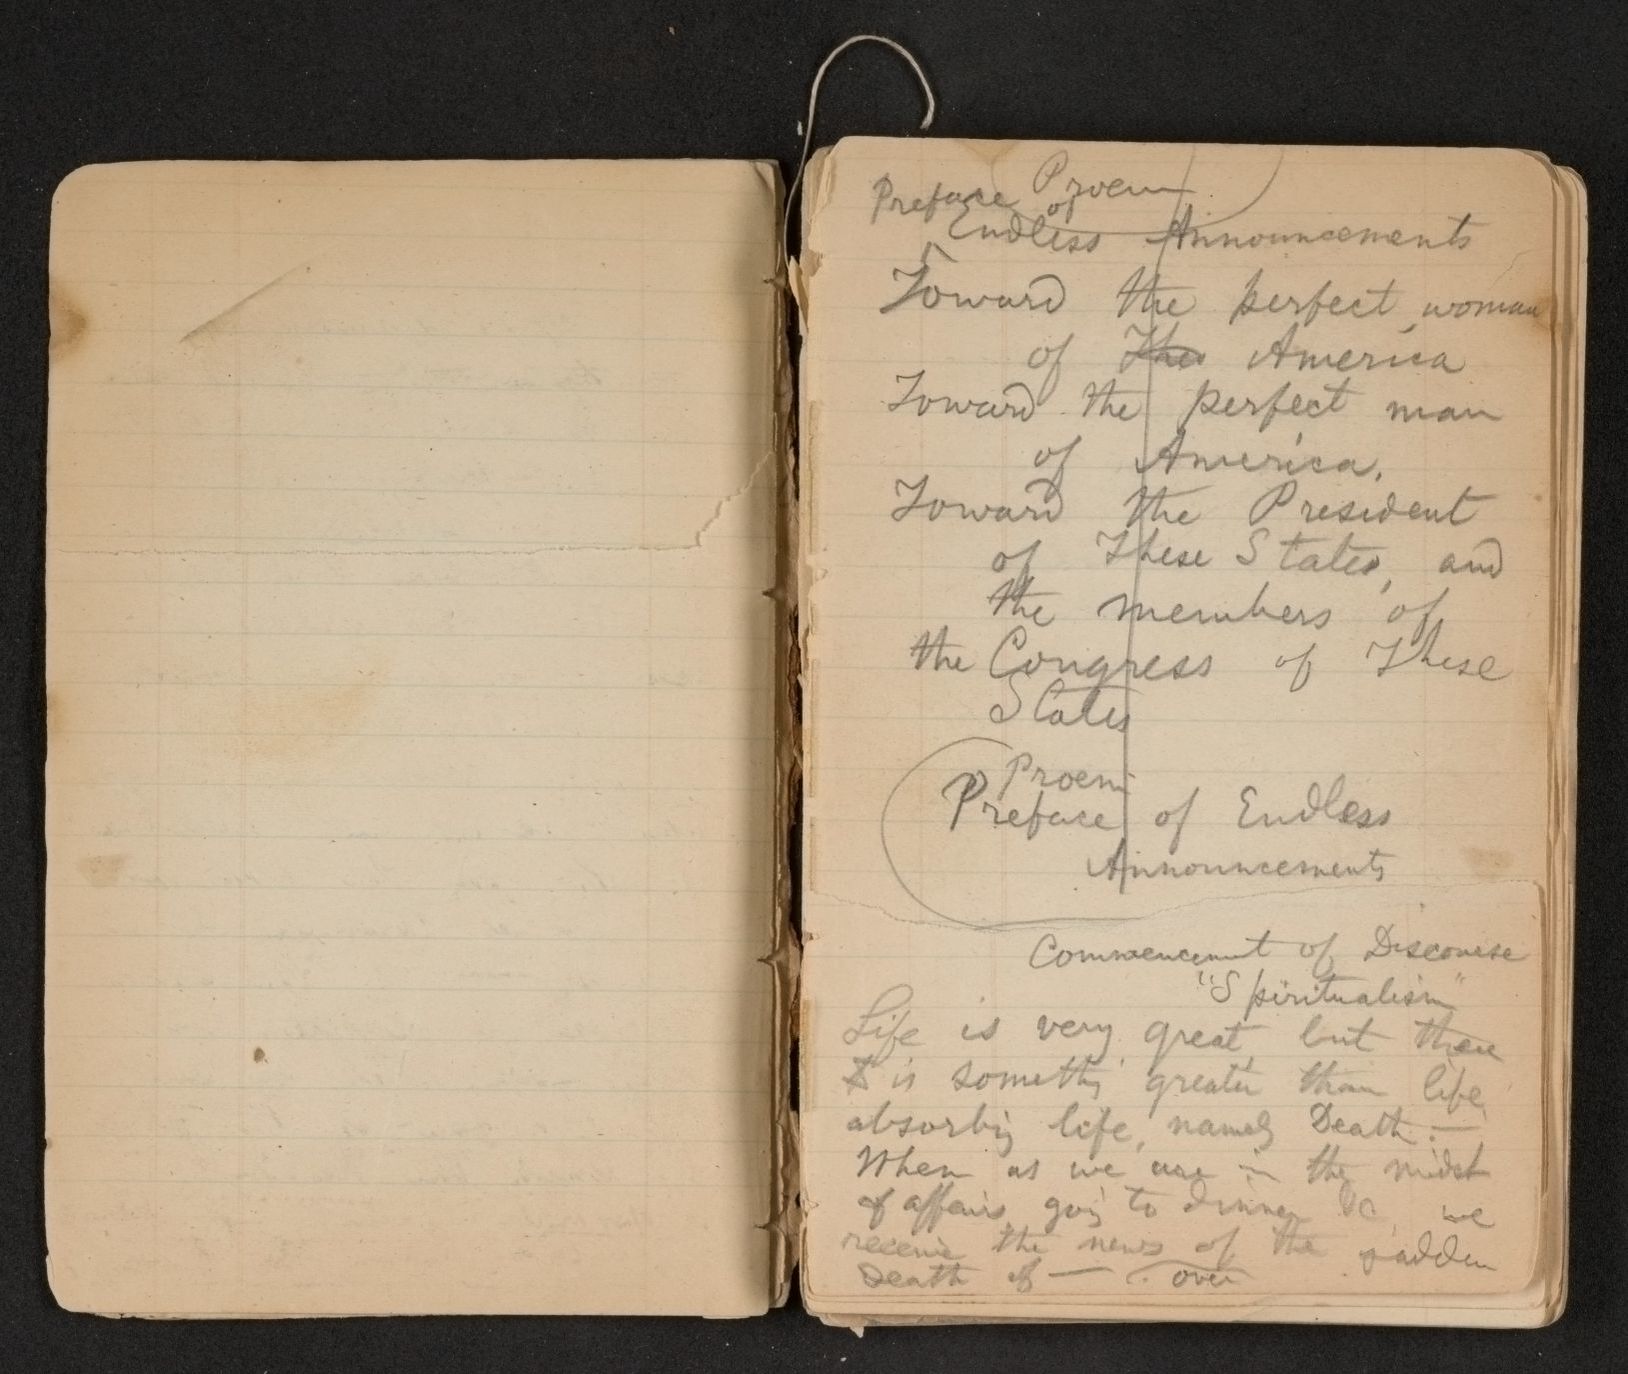 Proem
Preface of
Endless Announcements
Toward the perfect woman
of The America
Toward the perfect man
of America.
Toward the President
of These States, and
the members of
the Congress of These
States
Proem
Preface of Endless
Announcements
Commencement of Discourse
"Spiritualism"
Life is very great, but there
is somethg greater than life,
absorbig life, namely Death.—
When as we are in the midst
of affairs goig to dinner &c, we
receive the news of the sudden
Death of — . over